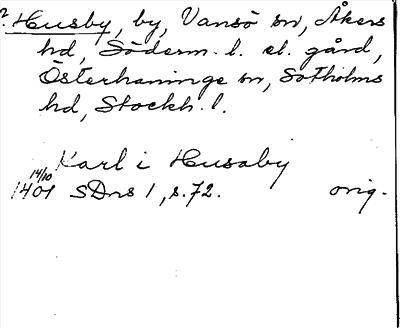 ? Husby, by, Vansö sn, Åkers
hd, Söderm. l. el. gård,
Österhaninge sn, Sotholms
hd, Stockh. l.
Karl i Husaby
14/10
1401 SDns 1, s. 72. orig.